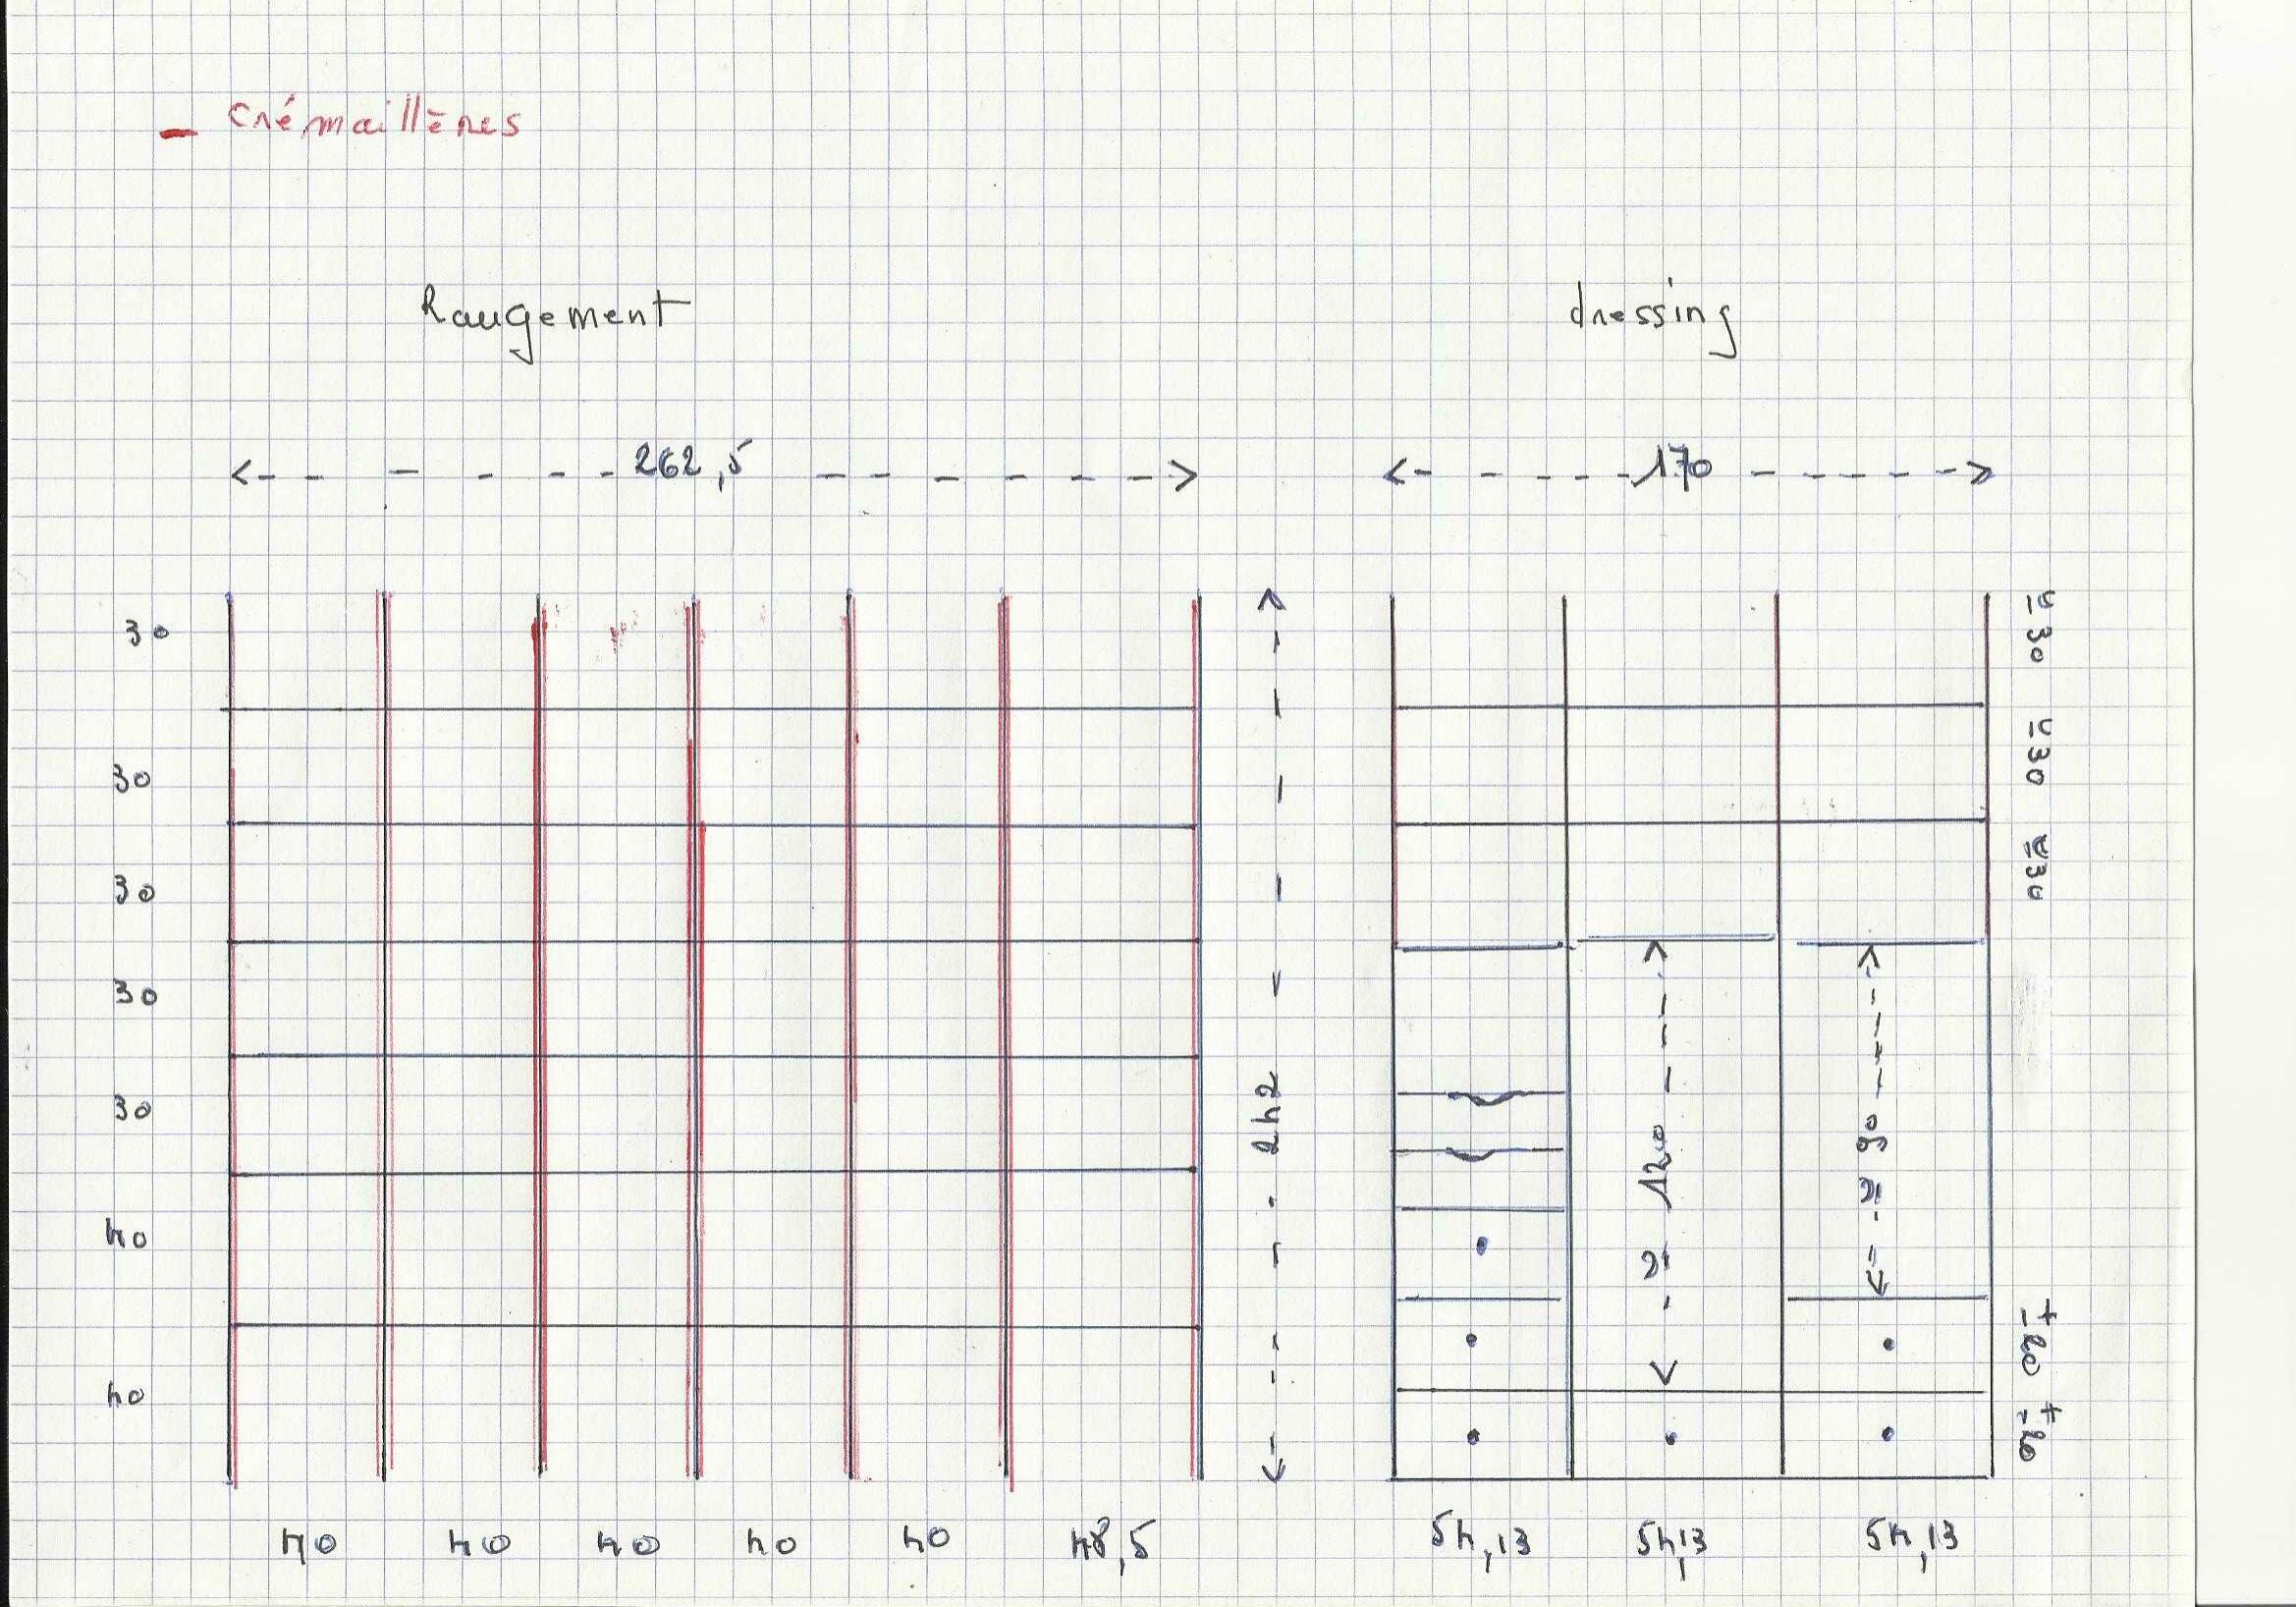 - crémaillères
Rangement
dressing
262,5
170
30
30
30
30
30
40
40
242
≃ 120
≃ 90
≃ 30
≃ 30
≃ 30
± 20
± 20
40
40
40
40
40
48,5
54,13
54,13
54,13